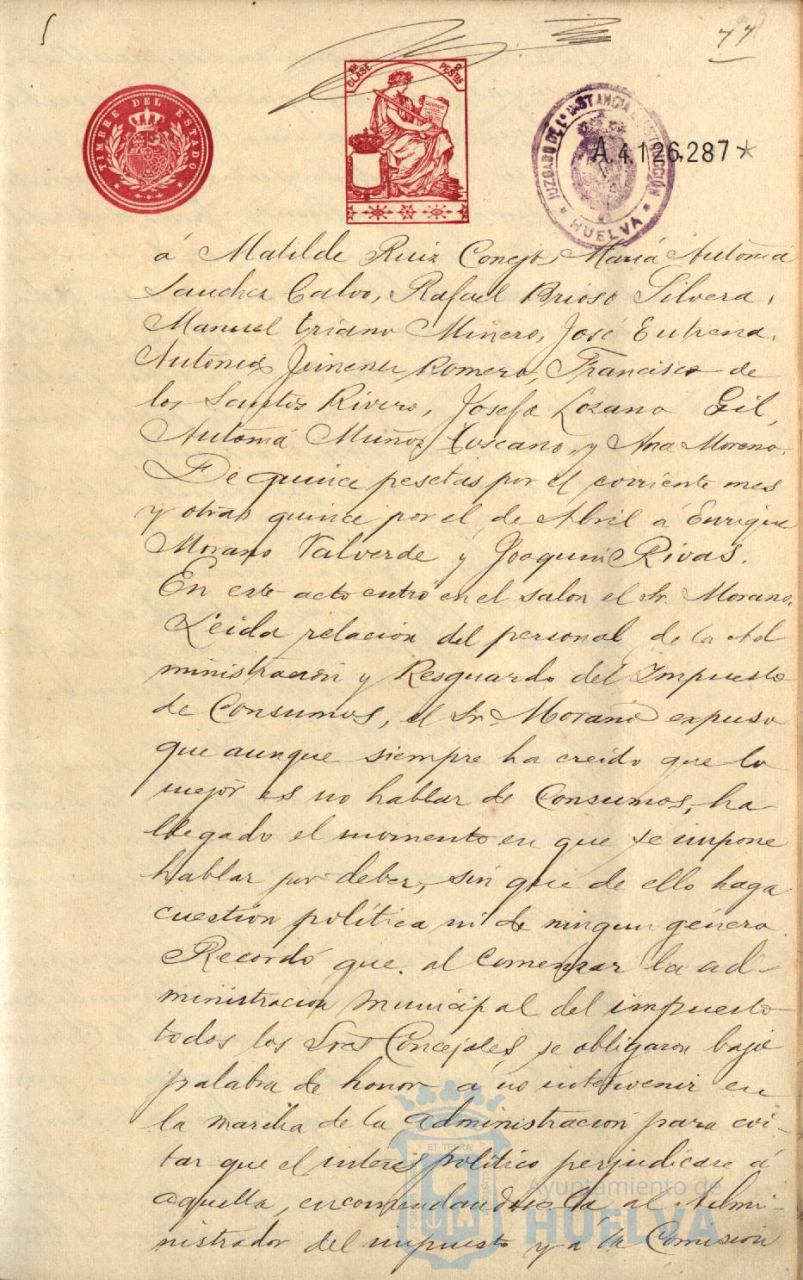 77
TIMBRE DEL ESTADO
CLASE
PESETAS
JUZGADO DE 1ª INSTANCIA INSTRUCCIÓN
HUELVA
A.4.126.287*
á Matilde Ruiz Conejo, María Antonia
Sanchez Calvo, Rafael Brioso Silvera,
Manuel Triano Miñero, José Eutrena,
Antonio Jimenez Romero, Francisco de
los Santos Rivero, Josefa Lozano Gil,
Antonia Muñoz Toscano, y Ana Moreno.
De quince pesetas por el corriente mes
y otras quince por el de Abril á Enrique
Morano Valverde y Joaquin Rivas.
En este acto entró en el salon el Sr. Morano.
Leida relacion del personal de la Ad-
ministración y Resguardo del Impuesto
de Consumos, el Sr. Morano expuso
que aunque siempre ha creido que lo
mejor es no hablar de Consumos, ha
llegado el momento en que se impone
hablar por deber, sin que de ello haga
cuestion política ni de ningun género.
Recordó que al comenzar la ad-
ministracion municipal del impuesto
todos los Sres Concejales, se obligaron bajo
palabra de honor a no intervenir en
la marcha de la administracion para evi-
tar que el interes político perjudicase á
aquella, encomendandose la al Admi-
nistrador del impuesto y a la Comision
Ayuntamiento de
HUELVA